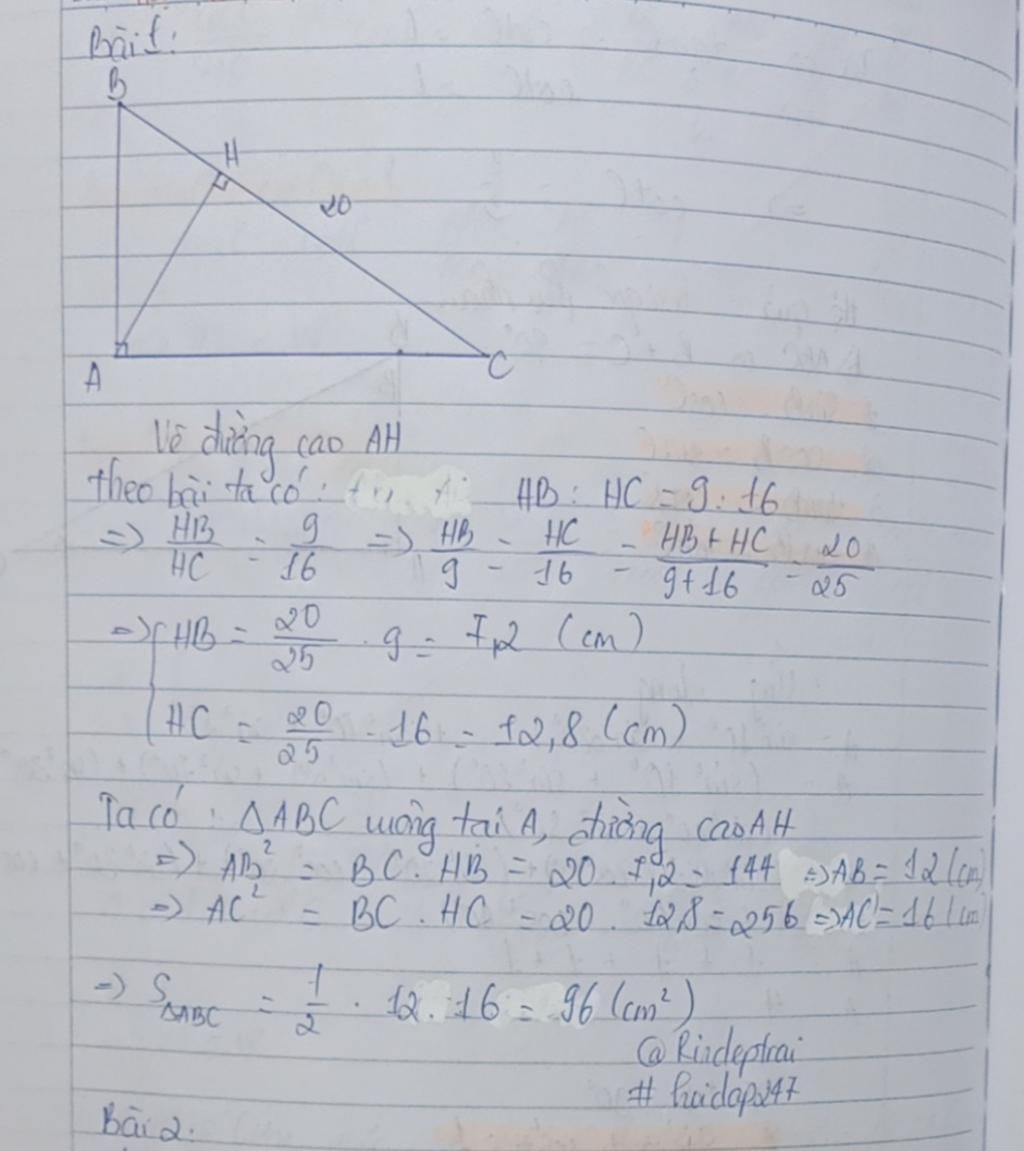 Bài 1:
B
H
20
A
C
Vẽ đường cao AH
theo bài ta có: HB : HC = 9 : 16
=> HB/HC = 9/16 => HB/9 = HC/16 = HB+HC/9+16 = 20/25
=> { HB = 20/25 . 9 = 7,2 (cm)
HC = 20/25 . 16 = 12,8 (cm)
Ta có : ΔABC vuông tại A, đường cao AH
=> AB² = BC . HB = 20 . 7,2 = 144 => AB = 12 (cm)
=> AC² = BC . HC = 20 . 12,8 = 256 => AC = 16 (cm
=> S ΔABC = 1/2 . 12 . 16 = 96 (cm²)
@ Rindeptrai
# hoidap247
Bài 2: